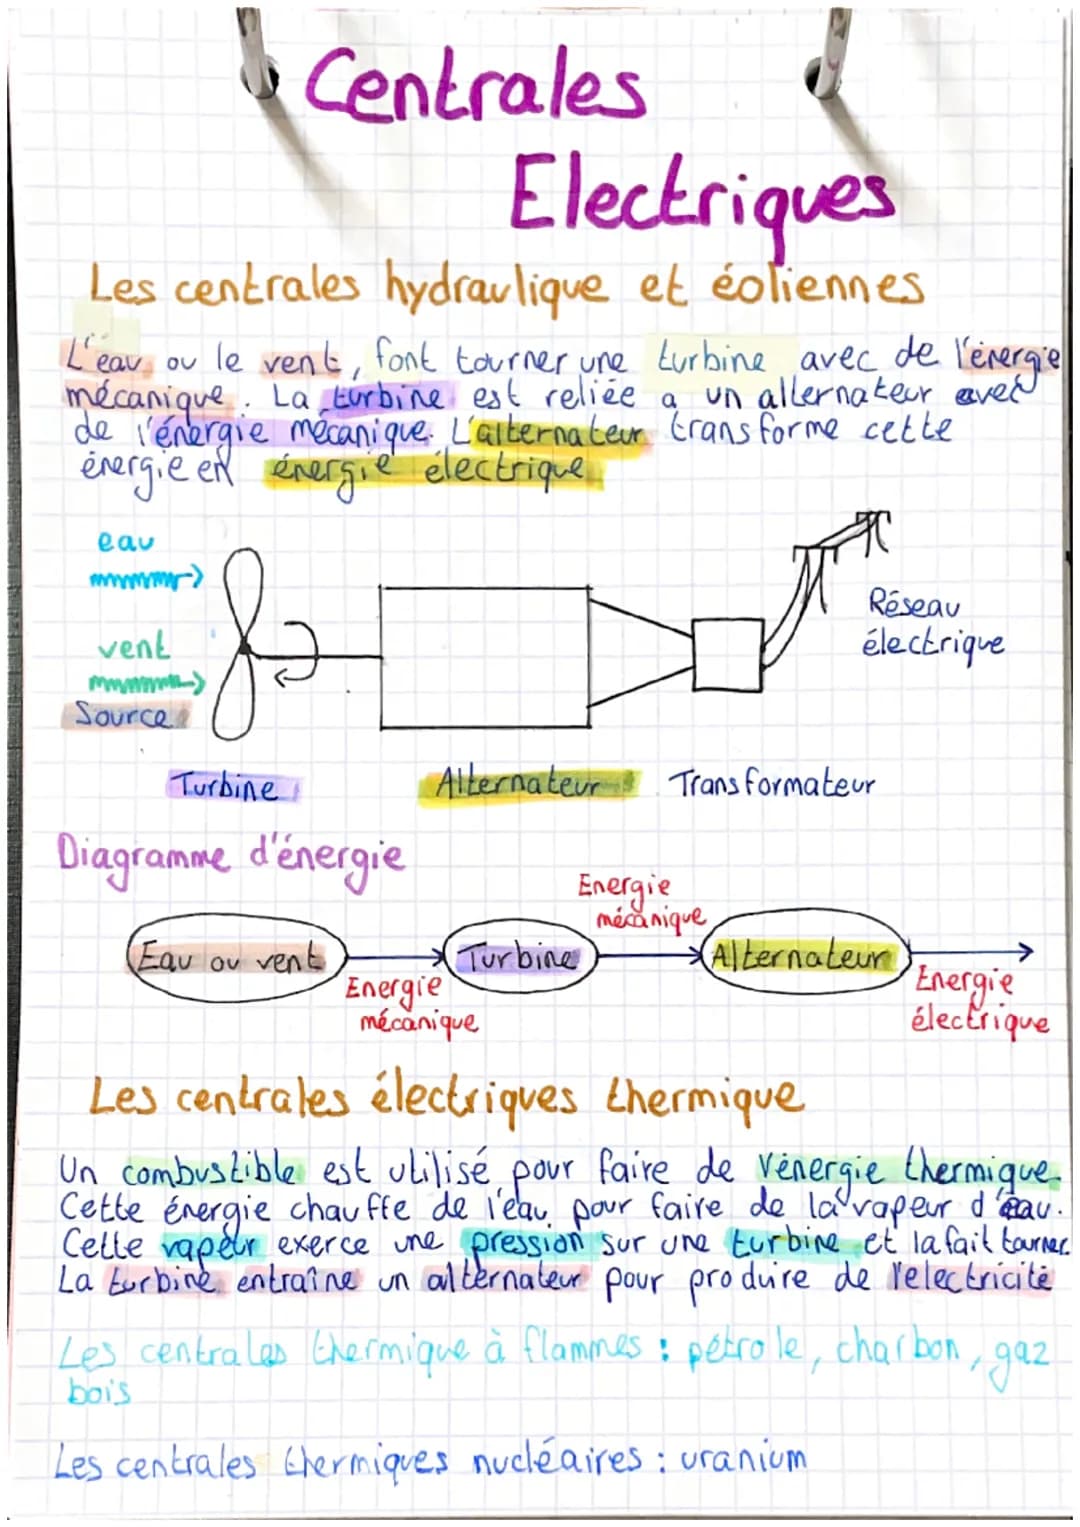 Centrales
Electriques
Les centrales hydraulique et éoliennes
L'eau ou le vent, font tourner une turbine avec de l'énergie
mécanique. La turbine est reliée a un alternateur avec
de l'énergie mécanique. L'alternateur transforme cette
énergie en énergie électrique
eau
vent
Source
Réseau
électrique
Turbine Alternateur Transformateur
Diagramme d'énergie
Energie
mécanique
Eau ou vent Turbine Alternateur
Energie
mécanique
Energie
électrique
Les centrales électriques thermique
Un combustible est utilisé pour faire de l'énergie thermique.
Cette énergie chauffe de l'eau pour faire de la vapeur d'eau.
Cette vapeur exerce une pression sur une turbine et la fait tourner.
La turbine entraîne un alternateur pour produire de l'electricité
Les centrales thermique à flammes : pétrole, charbon, gaz
bois
Les centrales thermiques nucléaires : uranium